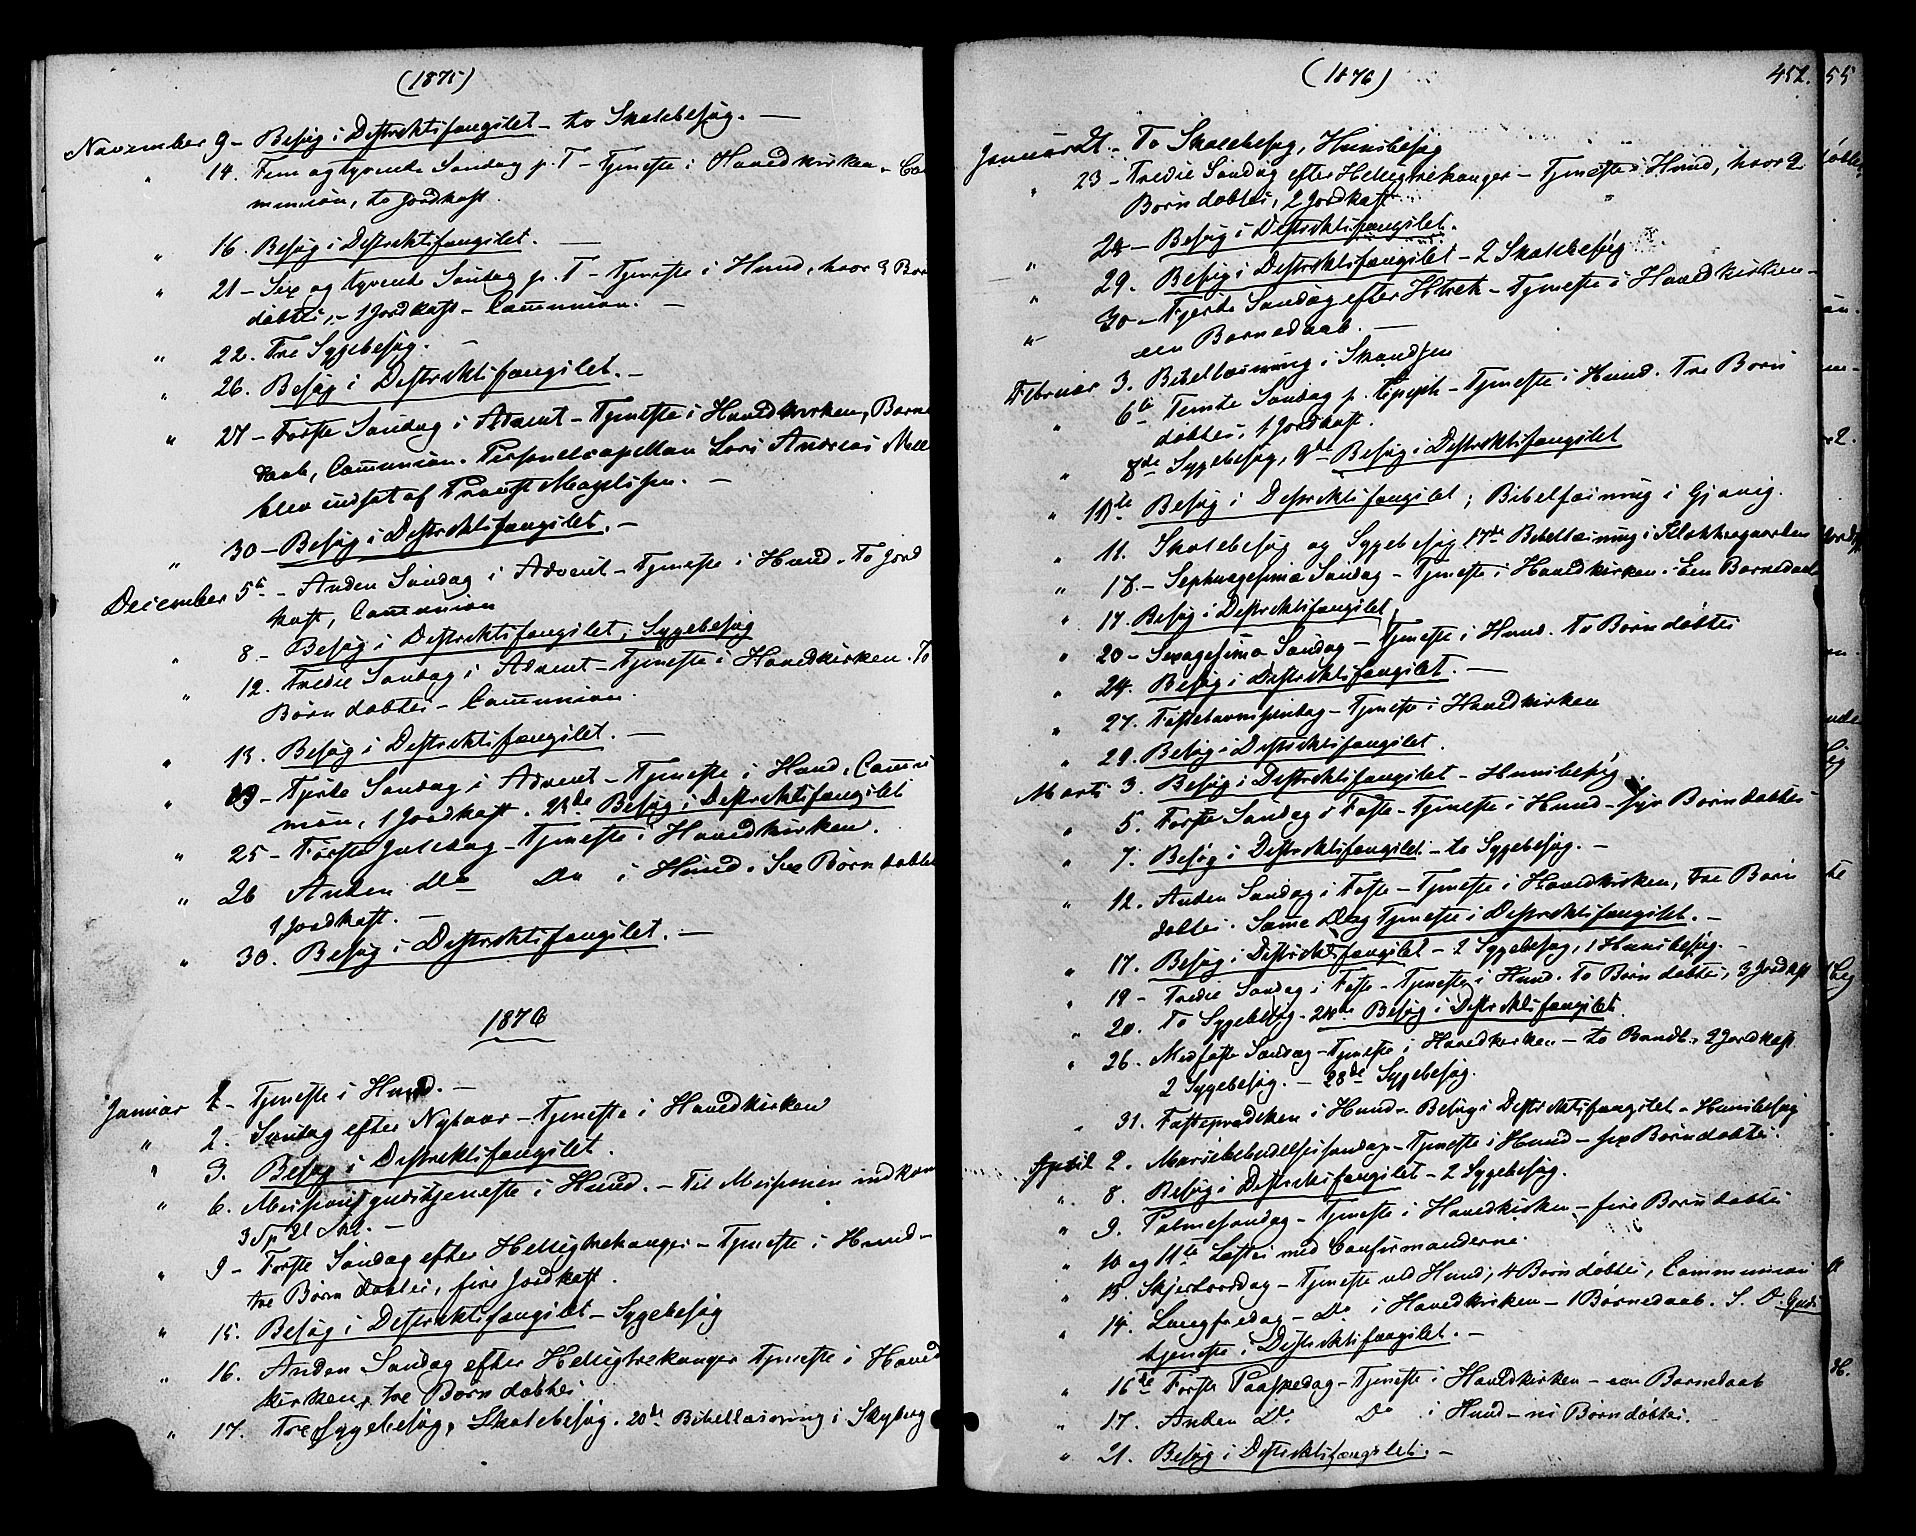 (1875)
November 9 - Besøg i Distriktsfængslet - to Skolebesøg. -
" 14. Fem og tyvende Søndag p. T - Tjeneste i Hovedkirken - Co
munion, to Jordkast.
" 16. Besøg i Distriktsfængslet. -
" 21 - Sex og tyvende Søndag p. T - Tjeneste i Hund, hvor 3 Børn
døbtes, - 1 Jordkast - Communion. -
" 22. Tre Sygebesøg. -
" 26. Besøg i Distriktsfængslet. -
" 27 - Første Søndag i Advent - Tjeneste i Hovedkirken, Barne
daab, Communion. Personelcapellan Lars Andreas
blev indsat af Provst Magelssen. -
" 30 - Besøg i Distriktsfængslet. -
December 5te - Anden Søndag i Advent - Tjeneste i Hund. To Jord
kast, Communion
" 8 - Besøg i Distriktsfængslet, Sygebesøg
" 12. Tredie Søndag i Advent - Tjeneste i Hovedkirken. To
Børn døbtes - Communion.
" 13. Besøg i Distriktsfængslet. -
" 19 - Fjerde Søndag i Advent - Tjeneste i Hund, Commu
nion, 1 Jordkast. 23de Besøg i Distriktsfængslet
" 25 - Første Juledag - Tjeneste i Hovedkirken.
" 26 Anden do Do i Hund. Sex Børn døbtes
1 Jordkast. -
" 30. Besøg i Distriktsfængslet. -
1876
Januar 1 - Tjeneste i Hund. -
" 2. Søndag efter Nytaar - Tjeneste i Hovedkirken
" 3. Besøg i Distriktsfængslet.
" 6. Missionsgudstjeneste i Hund. - Til Missionen indkom
3 Sp 21 Sk. -
" 9 - Første Søndag efter Helligtrekonger - Tjeneste i Hund -
tre Børn døbtes, fire Jordkast.
" 15. Besøg i Distriktsfængslet - Sygebesøg
" 16. Anden Søndag efter Helligtrekonger Tjeneste i Hoved
kirken, tre Børn døbtes
" 17. Tre Sygebesøg, Skolebesøg. 20de Bibellæsning i Skyberg
(1876)
452.
Januar 21 - To Skolebesøg, Huusbesøg
" 23 - Tredie Søndag efter Helligtrekonger - Tjeneste i Hund, hvor 2
Børn døbtes, 2 Jordkast
" 24 - Besøg i Distriktsfængslet.
" 29. Besøg i Distriktsfængslet - 2 Skolebesøg
" 30 - Fjerde Søndag efter Htrek - Tjeneste i Hovedkirken -
een Barnedaab. -
Februar 3. Bibellæsning i Skandsen
" 6te Femte Søndag p. Epiph - Tjeneste i Hund. Tre Børn
døbtes, 1 Jordkast.
" 8de Sygebesøg, 9de Besøg i Distriktsfængslet
" 10de Besøg i Distriktsfængslet; Bibellæsning i Gjøvig.
" 11. Skolebesøg og Sygebesøg 17de Bibellæsning i Klokkergaarden
" 13. - Septuagesima Søndag - Tjeneste i Hovedkirken. Een Barnedaab
" 17. Besøg i Distriktsfængslet
" 20 - Sexagesima Søndag - Tjeneste i Hund. To Børn døbtes
" 24. Besøg i Distriktsfængslet. -
" 27. Fastelavnssøndag - Tjeneste i Hovedkirken
" 29. Besøg i Distriktsfængslet.
Marts 3. Besøg i Distriktsfængslet - Huusbesøg.
" 5. Første Søndag i Faste - Tjeneste i Hund - syv Børn døbtes
" 7. Besøg i Distriktsfængslet - to Sygebesøg. -
" 12. Anden Søndag i Faste - Tjeneste i Hovedkirken, Tre Børn
døbtes. Samme Dag Tjeneste i Distriktsfængslet. -
" 17. Besøg i Distriktsfængslet - 2 Sygebesøg, 1 Huusbesøg. -
" 19 - Tredie Søndag i Faste - Tjeneste i Hund. To Børn døbtes, 3 Jordkast
" 20. To Sygebesøg - 24de Besøg i Distriktsfængslet.
" 26. Midfaste Søndag - Tjeneste i Hovedkirken - to Barndb., 2 Jordkast.
2 Sygebesøg. - 28de Sygebesøg.
" 31. Fasteprædiken i Hund - Besøg i Distriktsfængslet - Huusbesøg
April 2. Mariæbebudelsessøndag - Tjeneste i Hund - sex Børn døbtes.
" 8. Besøg i Distriktsfængslet - 2 Sygebesøg.
" 9. Palmesøndag - Tjeneste i Hovedkirken - fire Børn døbtes
" 10 og 11te Læstes med Confirmanderne.
" 13. Skjertorsdag - Tjeneste ved Hund, 4 Børn døbtes, Communion
" 14. Langfredag - Do i Hovedkirken - 1 Barnedaab. S. D. Guds
tjeneste i Distriktsfængslet. -
" 16de Første Paaskedag - Tjeneste i Hovedkirken - een Barnedaab
" 17. Anden Do Do i Hund - ni Børn døbtes.
" 21. Besøg i Distriktsfængslet. -
55